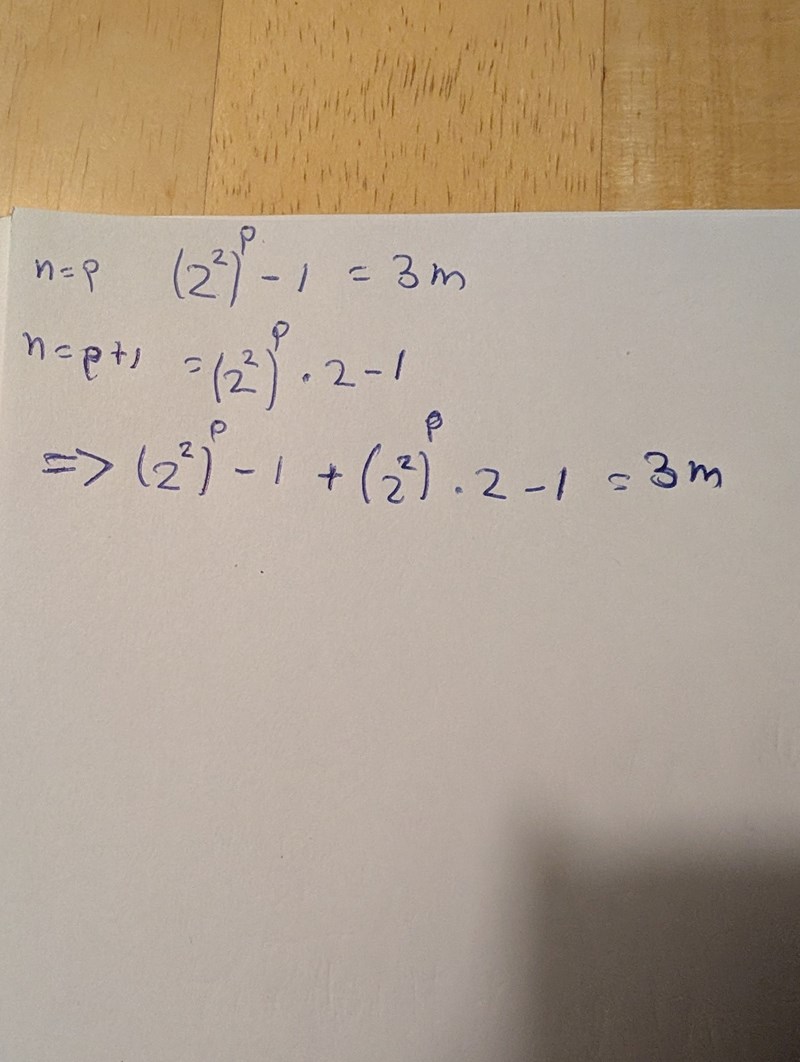 n=p (2²)ᵖ - 1 = 3m
n=p+1 =(2²)ᵖ · 2 - 1
=> (2²)ᵖ - 1 + (2²)ᵖ · 2 - 1 = 3m